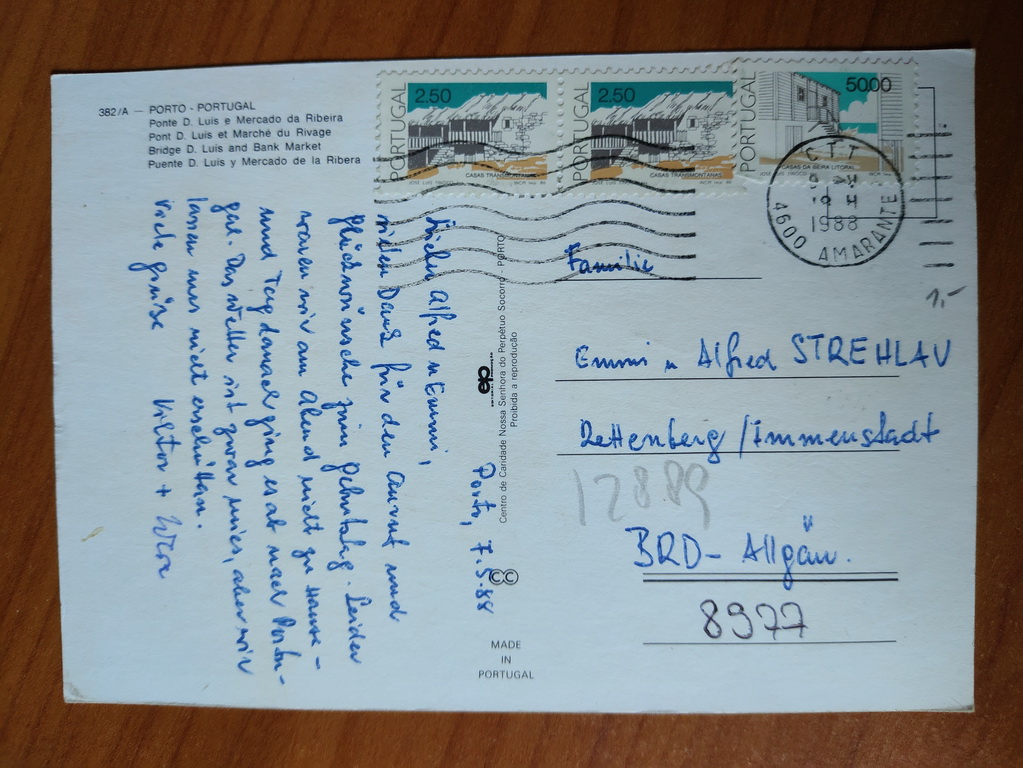 382/A — PORTO - PORTUGAL
Ponte D. Luis e Mercado da Ribeira
Pont D. Luis et Marché du Rivage
Bridge D. Luis and Bank Market
Puente D. Luis y Mercado de la Ribera
PORTUGAL
2.50
CASAS TRANSMONTANAS
PORTUGAL
2.50
CASAS TRANSMONTANAS
PORTUGAL
50.00
CASAS DA BEIRA LITORAL
CTT
1988
4600 AMARANTE
1,-
Porto, 7.5.88
Liebe Alfred u Emmi,
vielen Dank für den Anruf und
Glückwünsche zum Geburtstag. Leider
waren wir am Abend nicht zu Hause -
und Tag danach ging es ab nach Portu-
gal. Das Wetter ist zwar mies, aber wir
lassen uns nicht erschüttern.
Viele Grüsse Viktor +
Centro de Caridade Nossa Senhora do Perpétuo Socorro - PORTO
Proibida a reprodução
MADE
IN
PORTUGAL
Familie
Emmi u Alfred STREHLAU
Rettenberg/Immenstadt
12889
BRD - Allgäu.
8977